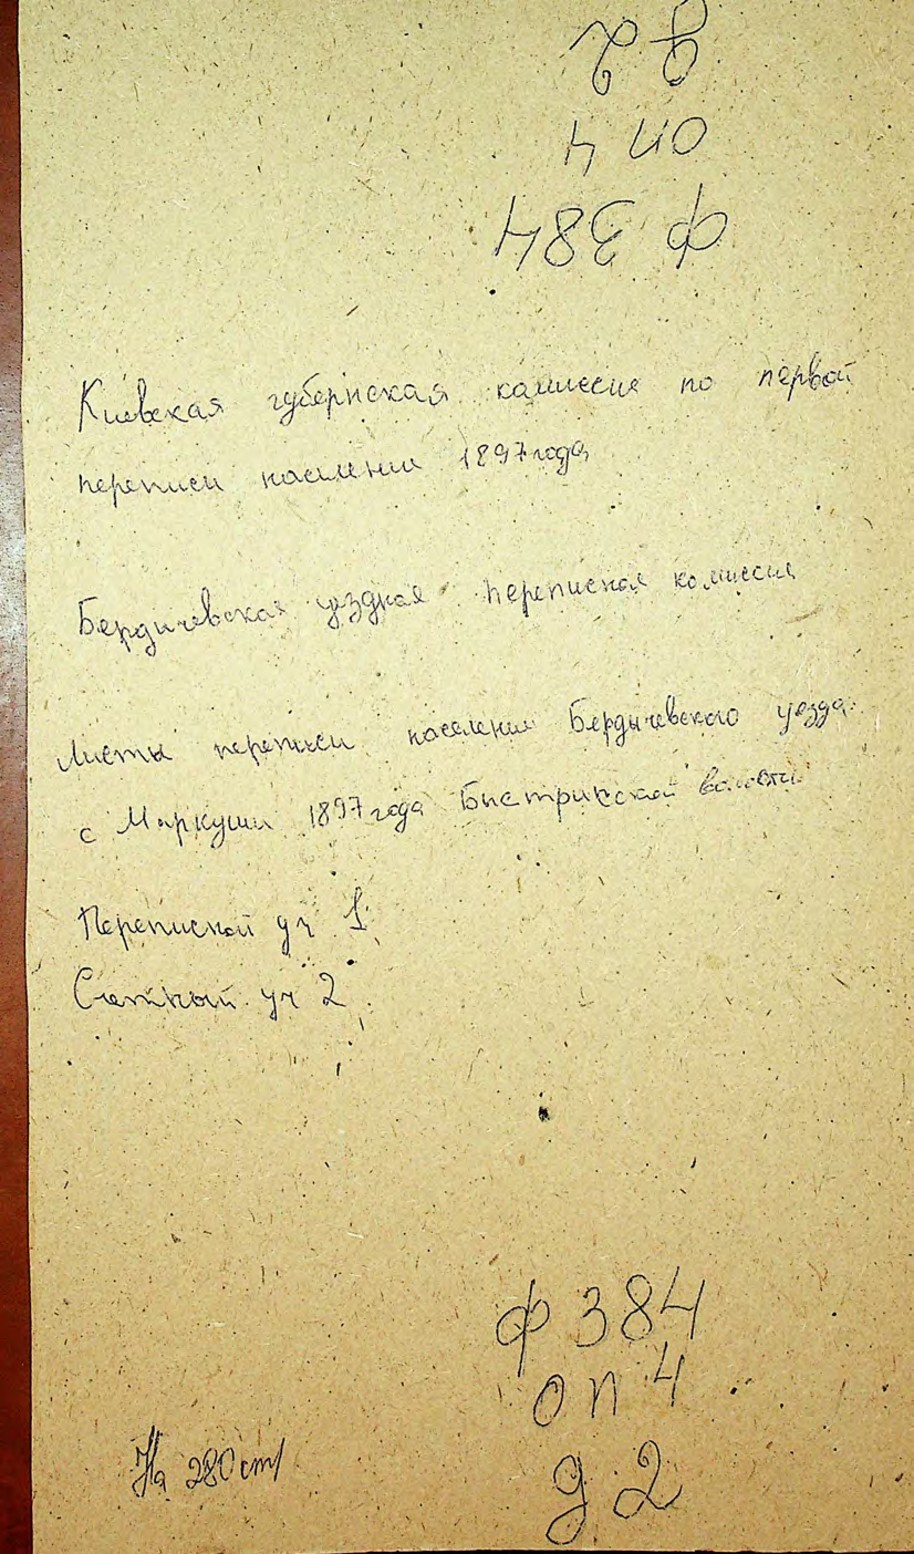 д 2
оп 4
ф 384
Киевская губернская комиссия по первой
переписи населения 1897 года
Бердичевская уездная переписная комиссия
Листы переписи населения Бердычевского уезда
с Маркуши 1897 года Быстрикской волости
Переписной уч 1
Счетный уч 2
ф 384
оп 4
д 2
На 280 ст